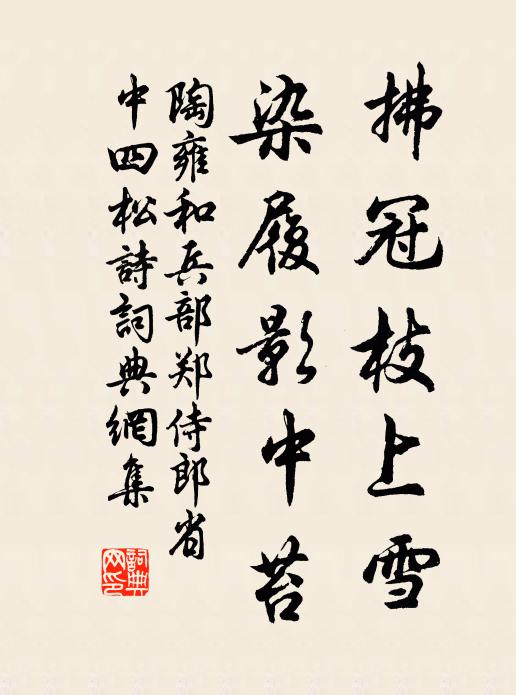 拂冠枝上雪
染履影中苔
陶雍和兵部郑侍郎省
中四松詩詞典網集
詞典网印